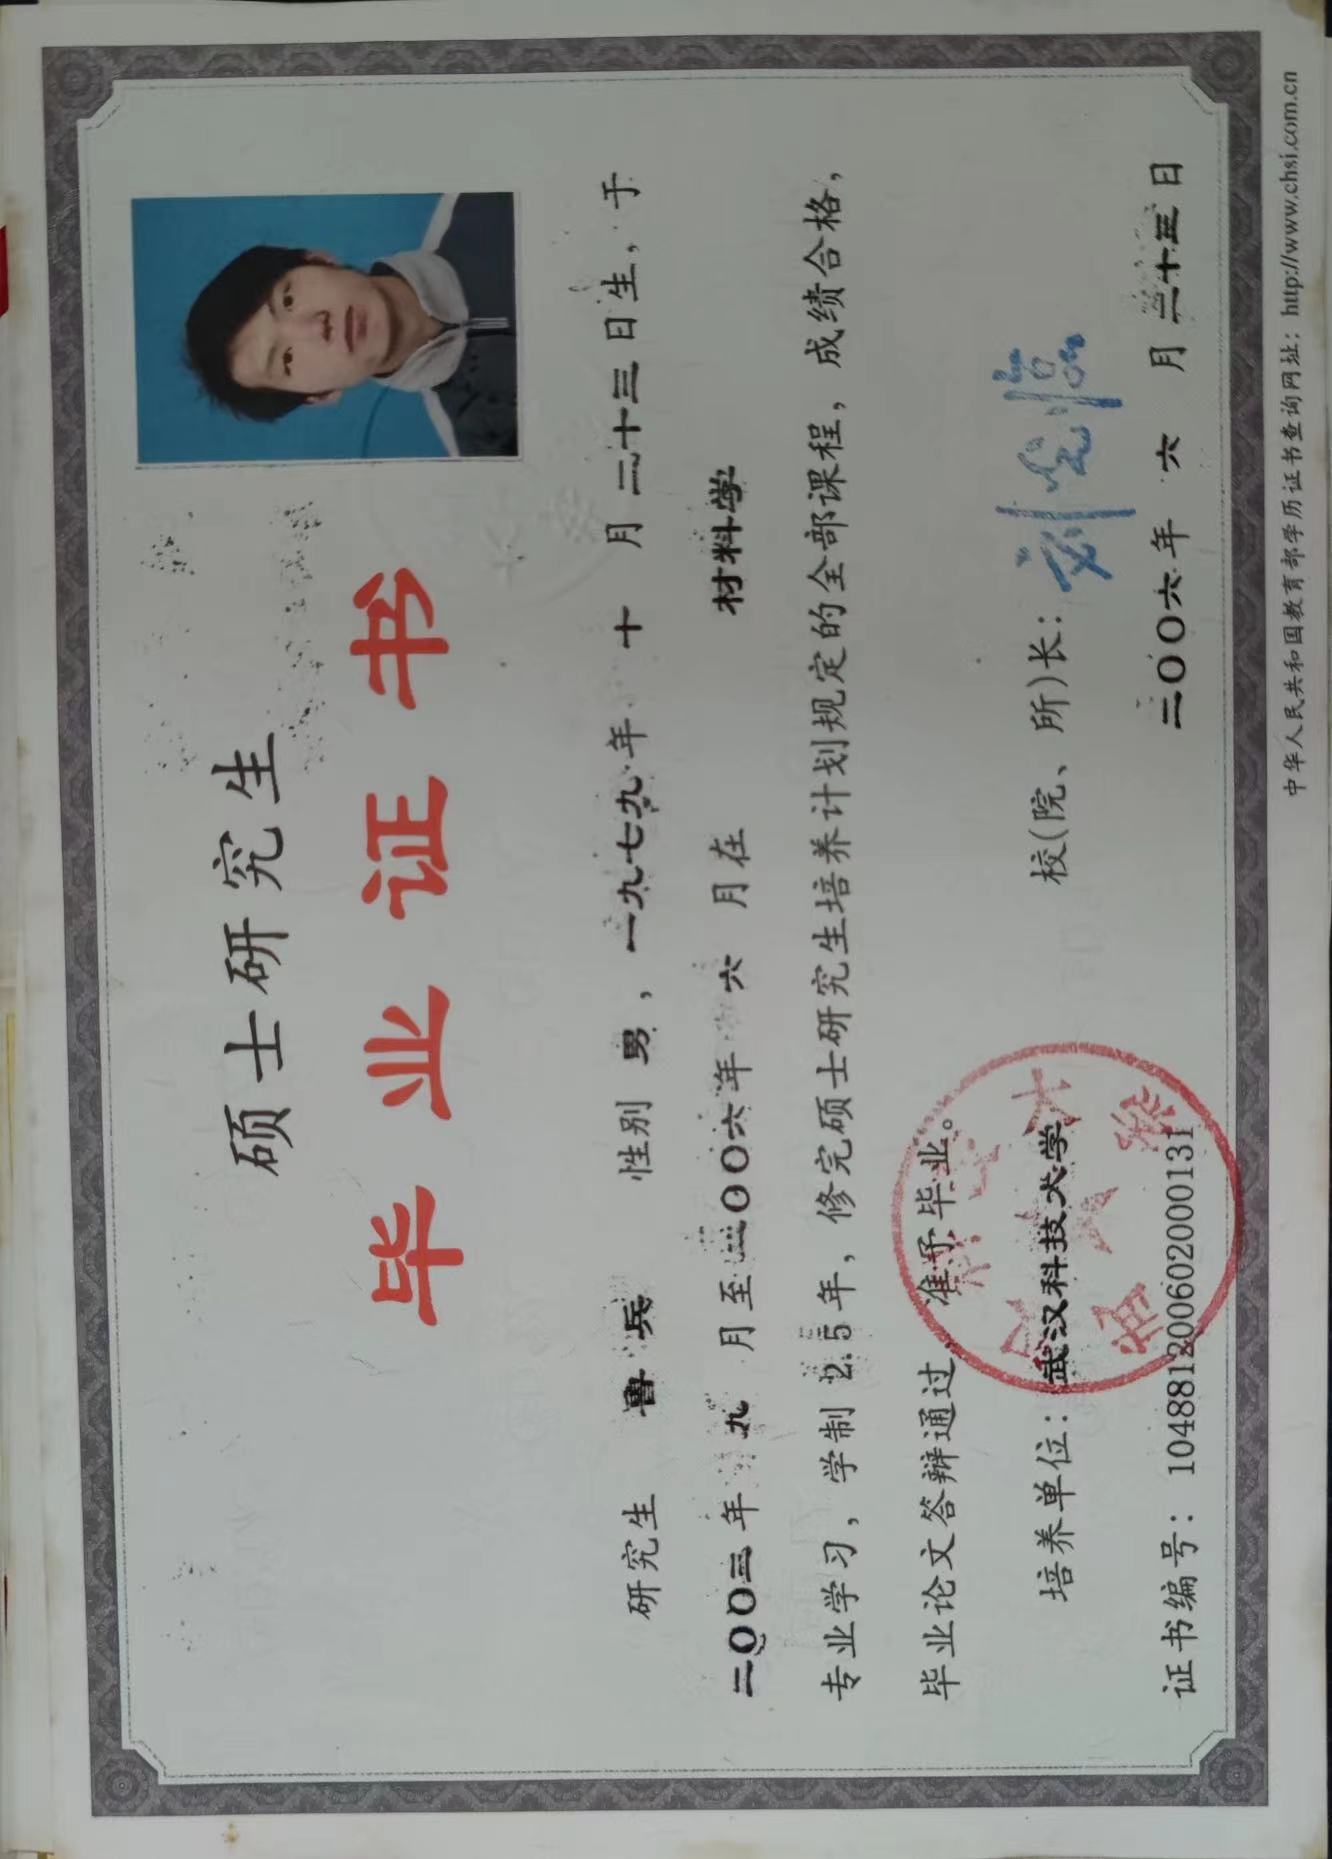 硕士研究生
毕业证书
研究生 鲁兵 性别 男，一九七九年 十 月 二十三日生，于
二〇〇三年 九 月至二〇〇六年 六 月在 材料学
专业学习，学制 2.5 年，修完硕士研究生培养计划规定的全部课程，成绩合格，
毕业论文答辩通过，准予毕业。
培养单位：武汉科技大学 校(院、所)长：
证书编号：104881200602000131 二〇〇六年 六 月 二十三日
中华人民共和国教育部学历证书查询网址：http://www.chsi.com.cn